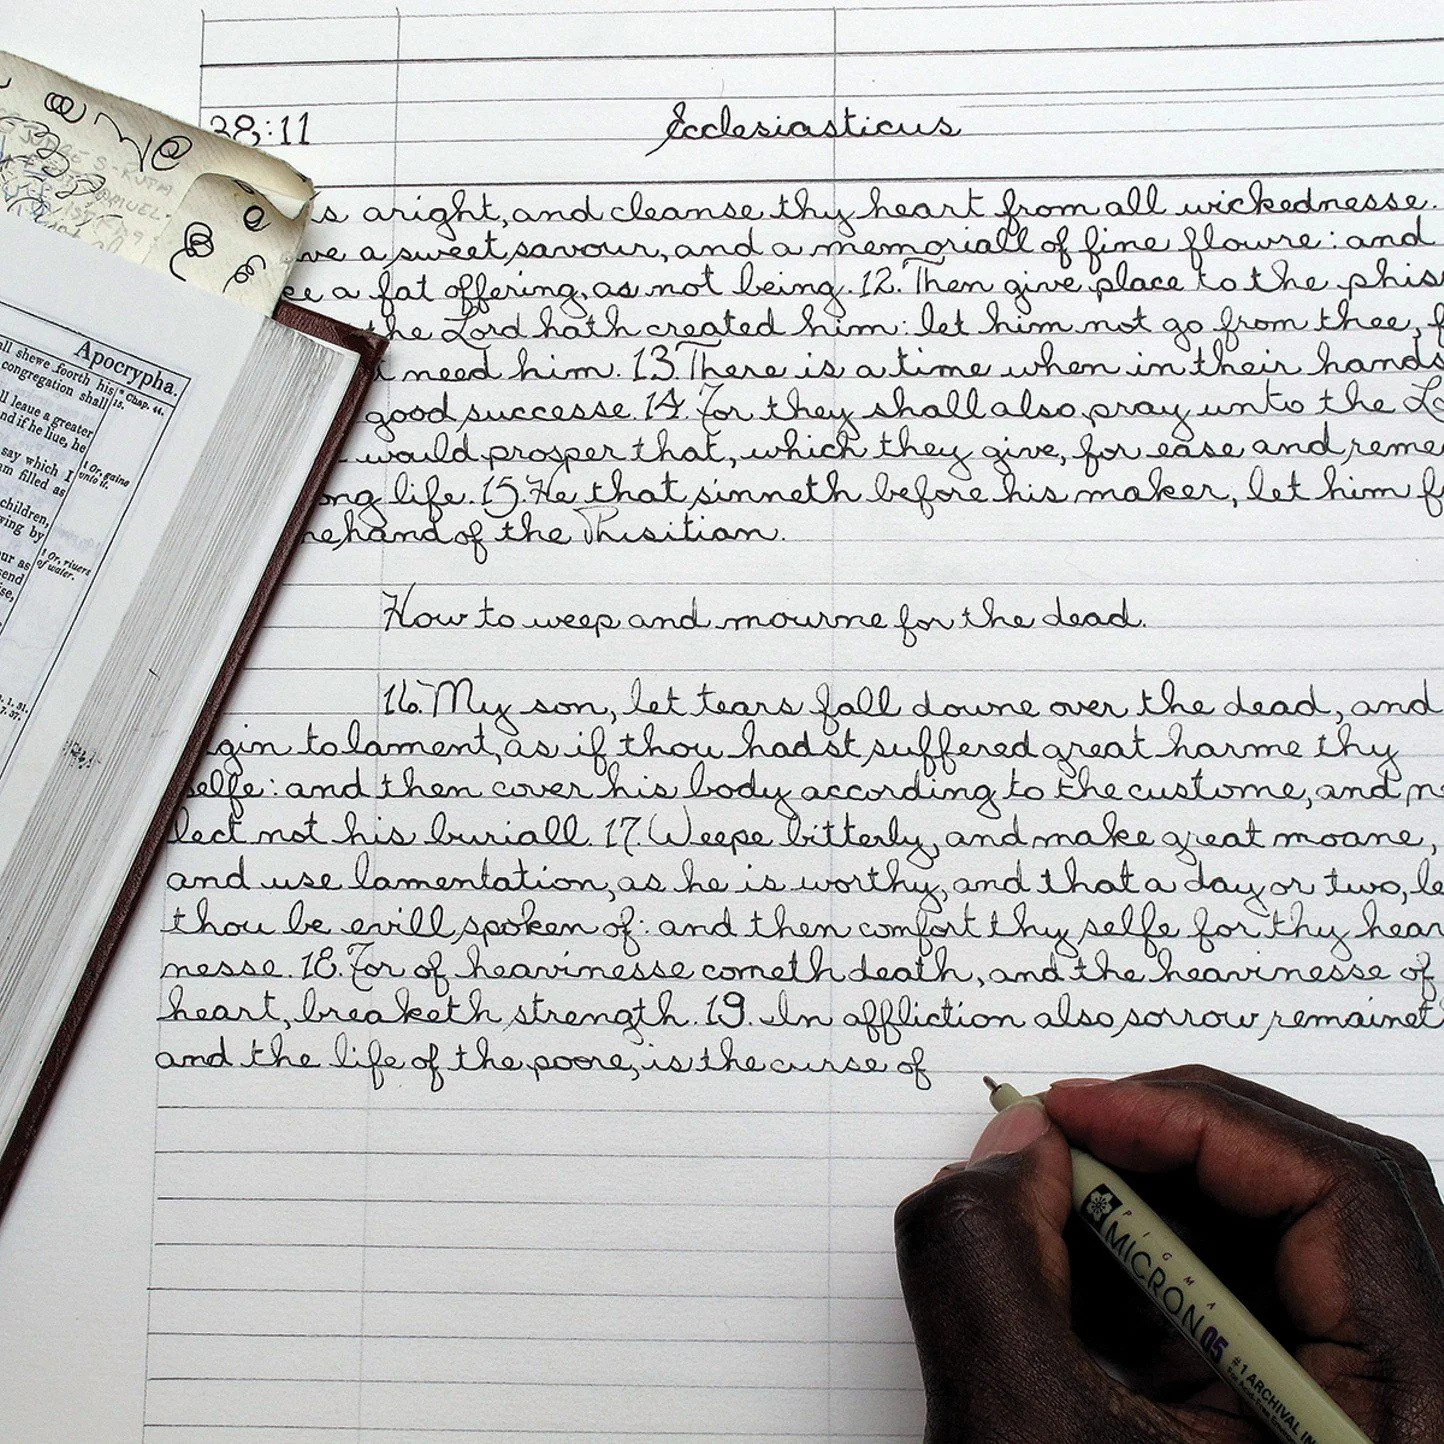 38:11 Ecclesiasticus
is aright, and cleanse thy heart from all wickednesse.
a sweet savour, and a memoriall of fine flowre: and
a fat offering, as not being. 12. Then give place to the phis
the Lord hath created him: let him not go from thee,
need him. 13. There is a time when in their hands
good successe. 14. For they shall also pray unto the Lo
would prosper that, which they give, for ease and reme
ong life. 15. He that sinneth before his maker, let him f
hand of the Phisitian.
How to weep and mourne for the dead.
16. My son, let tears fall downe over the dead, and
gin to lament, as if thou hadst suffered great harme thy
selfe: and then cover his body according to the custome, and ne
lect not his buriall. 17. Weepe bitterly, and make great moane,
and use lamentation, as he is worthy, and that a day or two, le
thou be evill spoken of: and then comfort thy selfe for thy heav
nesse. 18. For of heavinesse cometh death, and the heavinesse of
heart, breaketh strength. 19. In affliction also sorrow remaineth
and the life of the poore, is the curse of
Apocrypha.
all shewe foorth his
congregation shall
ll leaue a greater
and if he liue, he
say which I
am filled as
children,
wing by
our as
send
ise,
* Chap. 44.
15.
† Or, gaine
unto it.
† Or, riuers
of water.
JUDGES-RUTH
PIGMA
MICRON 05
#1 ARCHIVAL IN